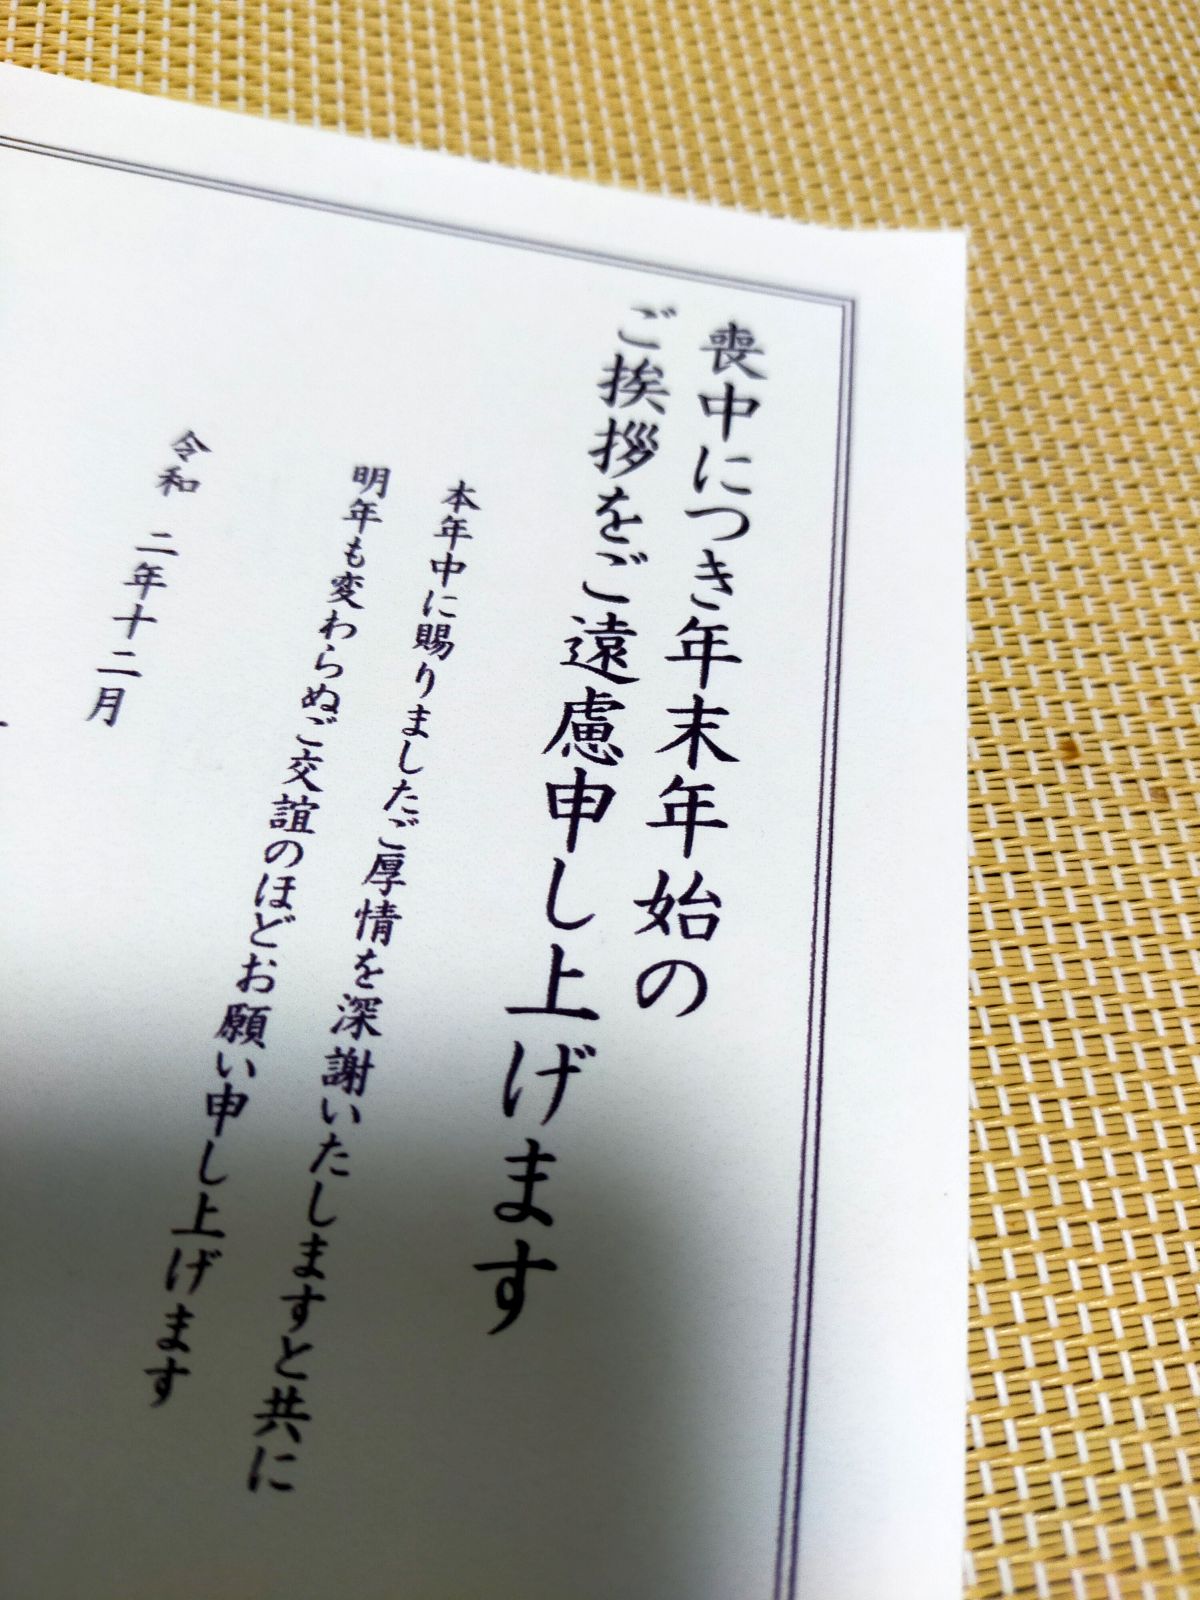 喪中につき年末年始の
ご挨拶をご遠慮申し上げます
本年中に賜りましたご厚情を深謝いたしますと共に
明年も変わらぬご交誼のほどお願い申し上げます
令和 二年十二月